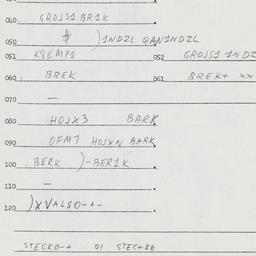 040 GROJS1 BR1K
050 # )1NDZL QAN1NDZL
051 K8EMP1 052 GROJS1 1NDZ
060 BREK 061 BREK+ XX
070 —
080 HOJX3 BARK
090 OFM7 HOJXN BARK
100 BERK )-BER1K
110 —
120 )XVAL80-+-
STECKO-+ 91 STEC+KE